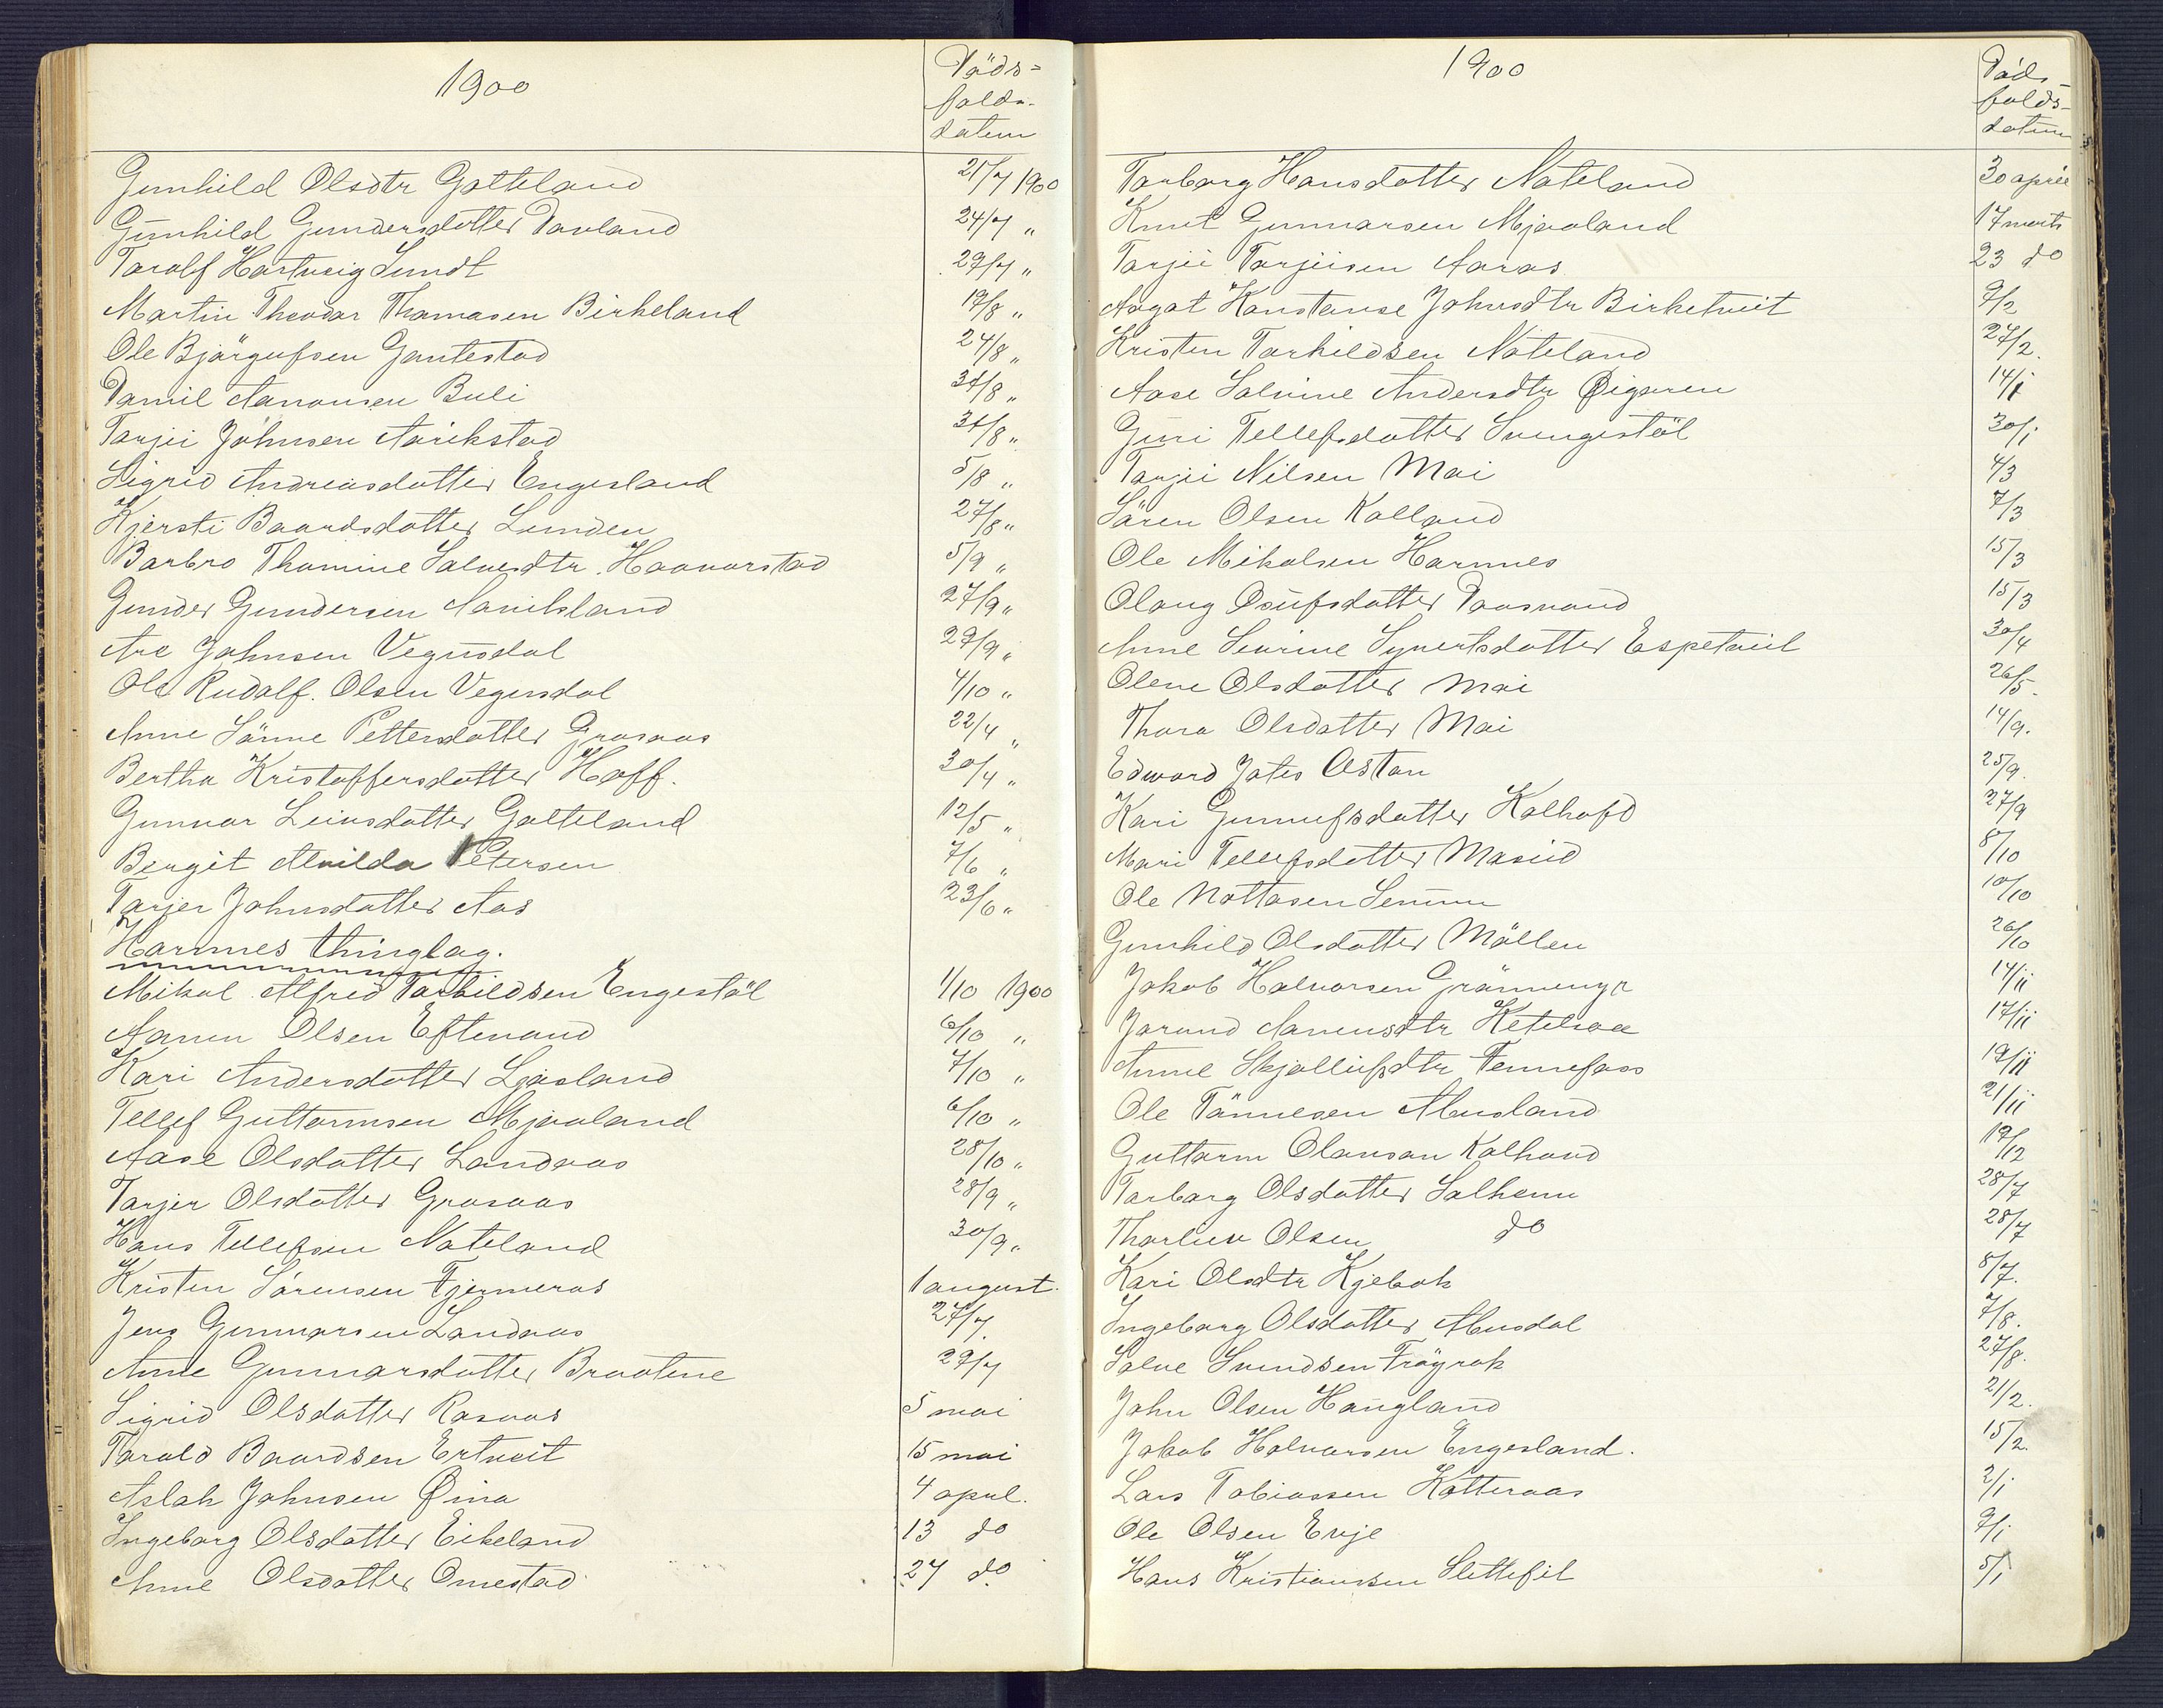 1900
Døds-
falds-
datum
Gunhild Olsdtr Galteland 21/7 1900
Gunhild Gundersdotter Dovland 24/7 "
Torolf Hartvig Lundt 29/7 "
Martin Theodor Thomasen Birkeland 19/8 "
Ole Bjørgufsen Gautestad 24/8 "
Daniel Aanonsen Buli 31/8 "
Tarjei Johnsen Aarikstad 31/8 "
Sigrid Andreasdotter Engesland 5/8 "
Kjersti Baardsdotter Lunden 27/8 "
Barbro Thomine Salvesdtr. Haavorstad 5/9 "
Gunder Gundersen 27/9 "
Are Johnsen Vegusdal 29/9 "
Ole Rudolf. Olsen Vegusdal 4/10 "
Anne Pettersdotter Grosaas 22/4 "
Bertha Kristoffersdotter Hoff. 30/4 "
Gunvor Leivsdotter Galteland 12/5 "
Bergit Alvilda Petersen 7/6 "
Torjer Johnsdotter Aas 23/6 "
Hornnes thinglag.
Mikal Alfred Torkildsen Engestøl 1/10 1900
Aanen Olsen Eftevand 6/10 "
Kari Andersdotter Ljosland 7/10 "
Tellef Guttormsen Mjaaland 6/10 "
Aase Olsdotter Landaas 28/10 "
Torjer Olsdotter Grosaas 28/9 "
Hans Tellefsen Nateland 30/9 "
Kristen Sørensen Fjermeros 1 august.
Jens Gunnarsen Landaas 27/7.
Anne Gunnarsdotter Braatene 29/7
Sigrid Olsdotter Rosaas 5 mai
Torald Baardsen Ertveit 15 mai
Aslak Johnsen Øina 4 april.
Ingeborg Olsdotter Eikeland 13 do
Anne Olsdotter Omestad 27 do.
1900
Døds-
falds-
datum
Torborg Hansdotter Nateland 30 april
Knut Gunnarsen Mjaaland 17 marts
Tarjei Tarjeisen Aaras 23 do
Aagot Konstanse Johnsdtr Birketveit 9/2
Kristen Torkildsen Nateland 27/2.
Aase Salvine Andersdtr 14/1
Guri Tellefsdotter Svengestøl 30/1
Tarjei Nilsen Moi 4/3
Søren Olsen Kolland 7/3
Ole Mikalsen Hornnes 15/3
Olaug Osufsdotter Daasvand 15/3
Anne Severine Syvertsdotter Espetveit 30/4
Olene Olsdotter Moi 26/5.
Thora Olsdotter Moi 14/9.
Edward Jates Aston 25/9.
Kari Gunnufsdotter Kalhovd 27/9
Mari Tellefsdotter 8/10
Ole Nottosen Senum 10/10
Gunhild Olsdotter Møllen 26/10
Jakob Halvorsen Grønnengr 14/11
Jorand Aanensdtr Ketelsaa 17/11
Anne Skjellufsdtr Fennefoss 19/11
Ole Tønnesen Abusland 21/11
Guttorm Olavson Kalhovd 19/12
Torborg Olsdotter Solhem 28/7
Thorleiv Olsen do 28/7
Kari Olsdtr Kjebok 8/7.
Ingeborg Olsdotter Abusdal 7/8.
Salve Svendsen Frøyrak 27/8.
John Olsen Haugland 21/2.
Jakob Halvorsen Engesland. 15/2.
Lars Tobiassen Katteraas 2/1
Ole Olsen Evje 9/1.
Hans Kristiansen Slettefit 5/1